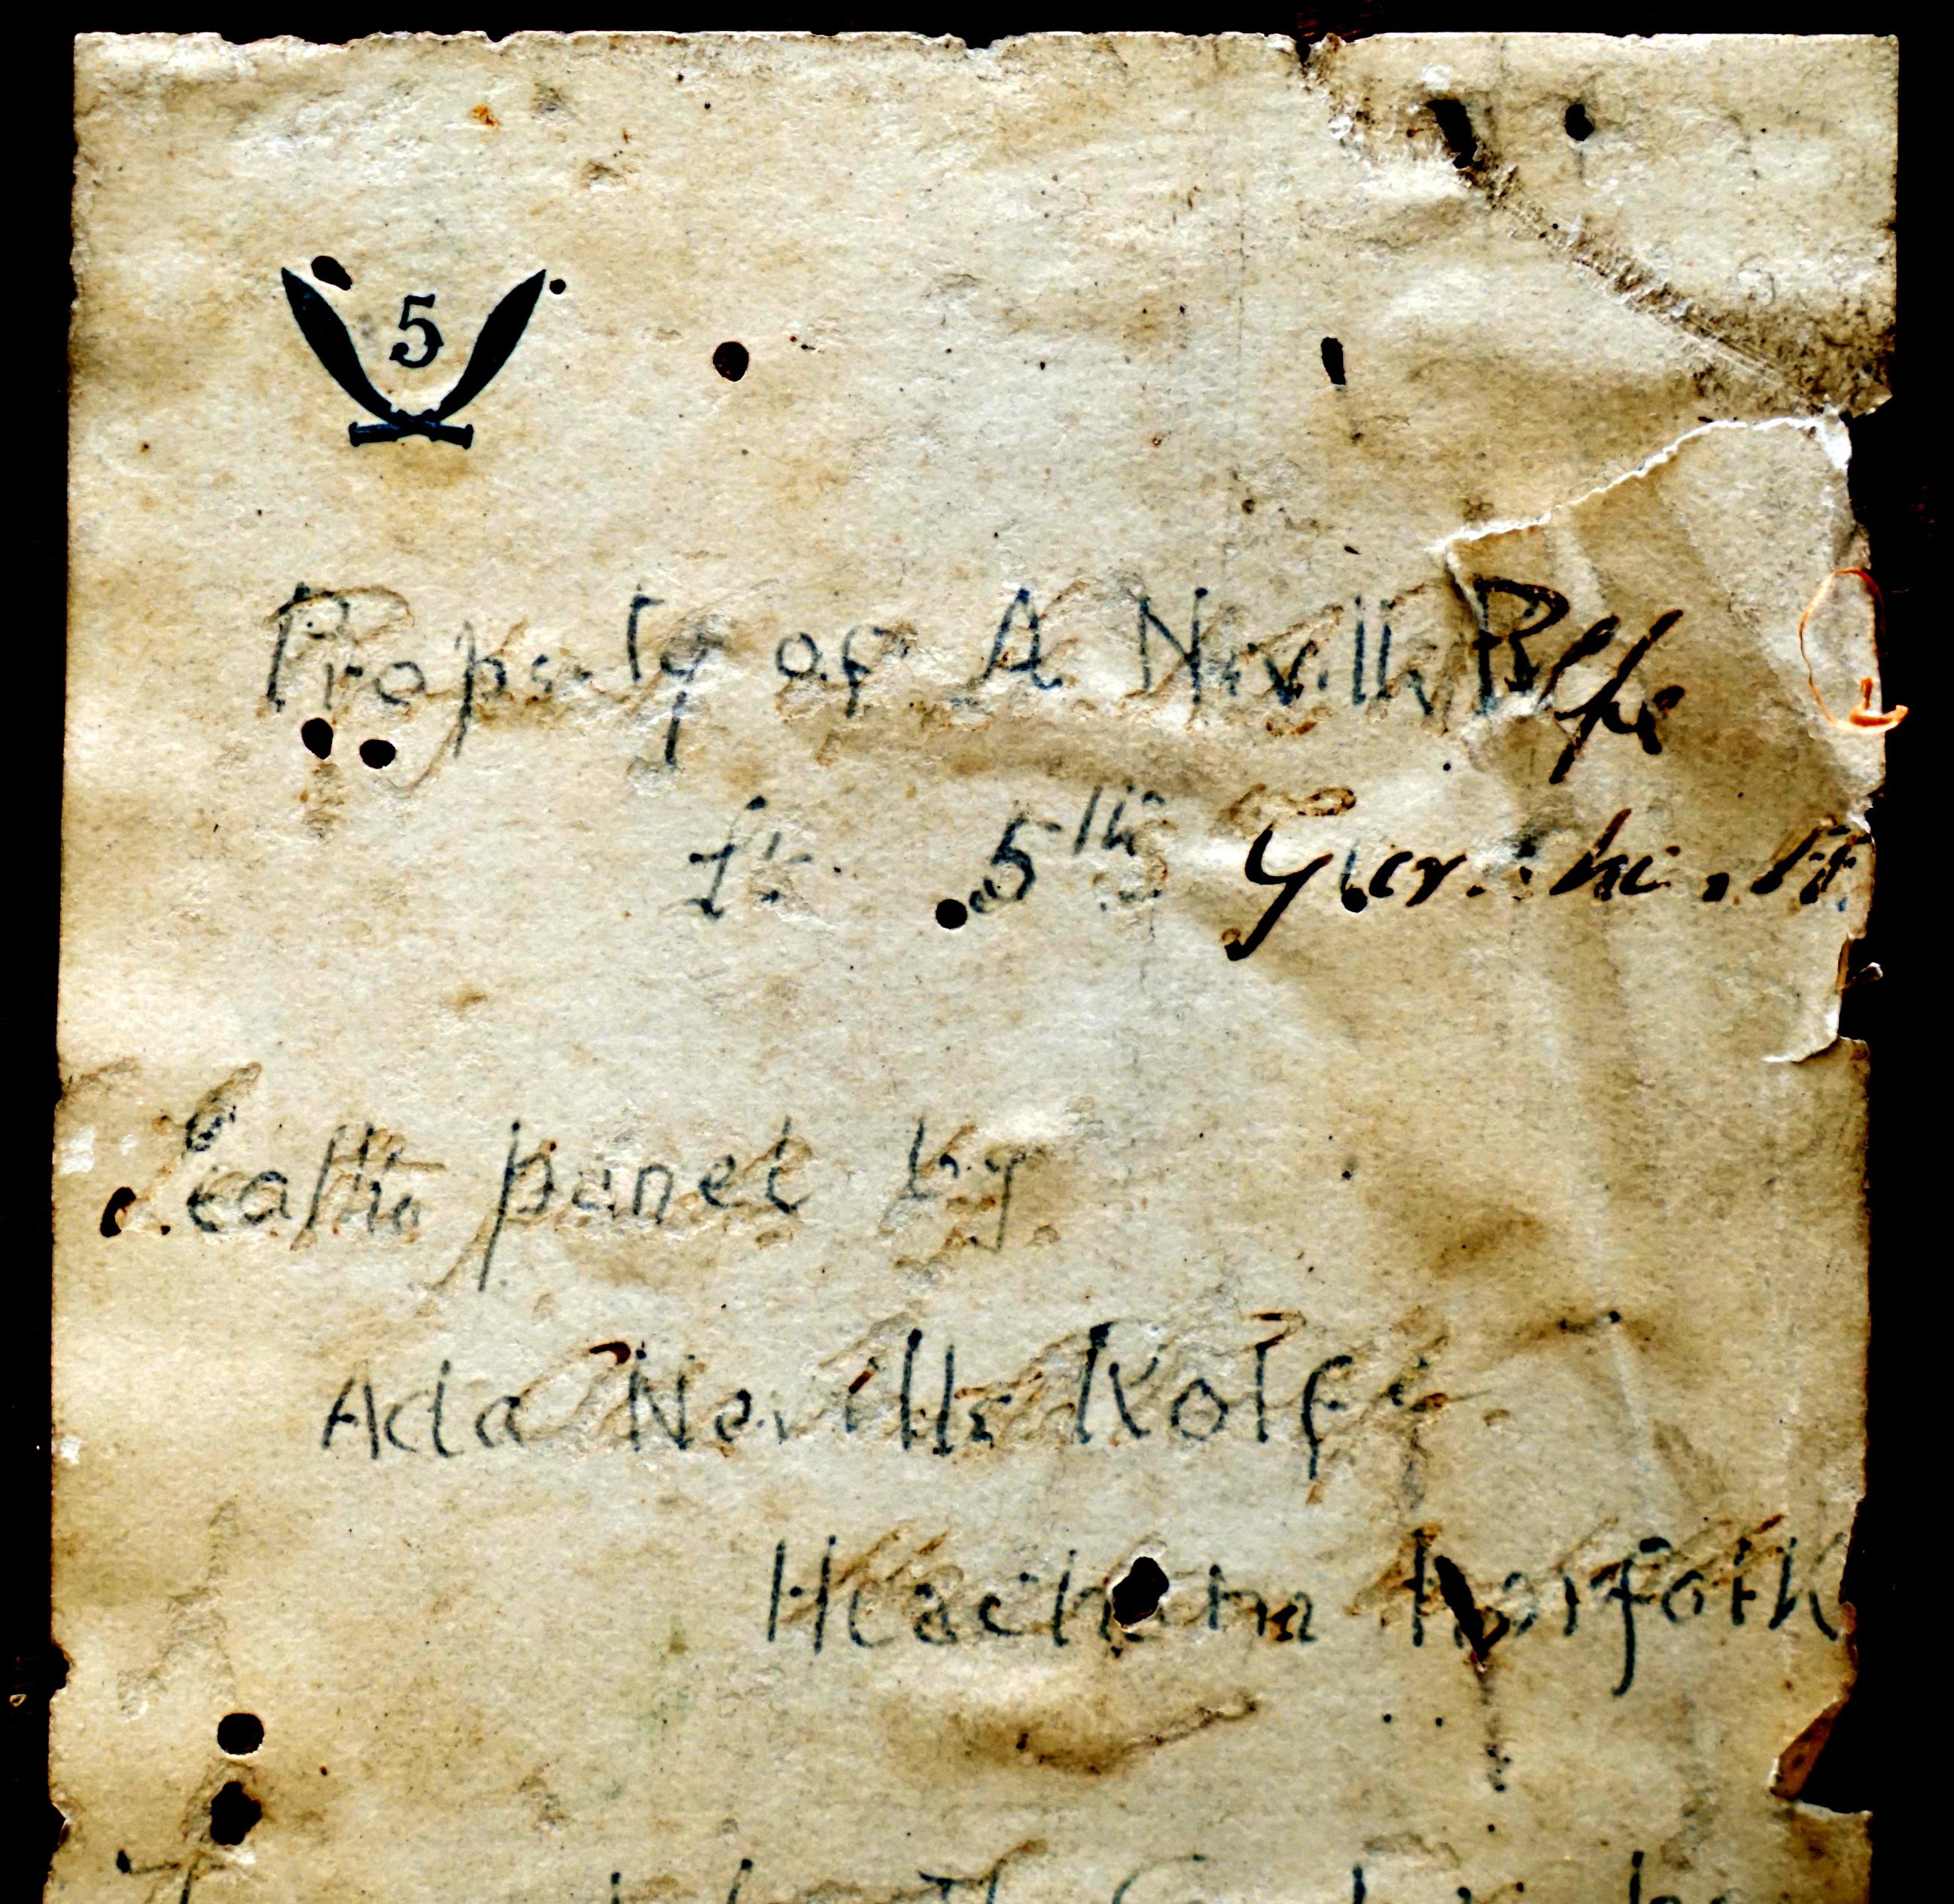 5
Property of A Neville Rolfe
Lt. 5th Gurkha
panel by
Ada Neville Rolfe
Heacham Norfolk